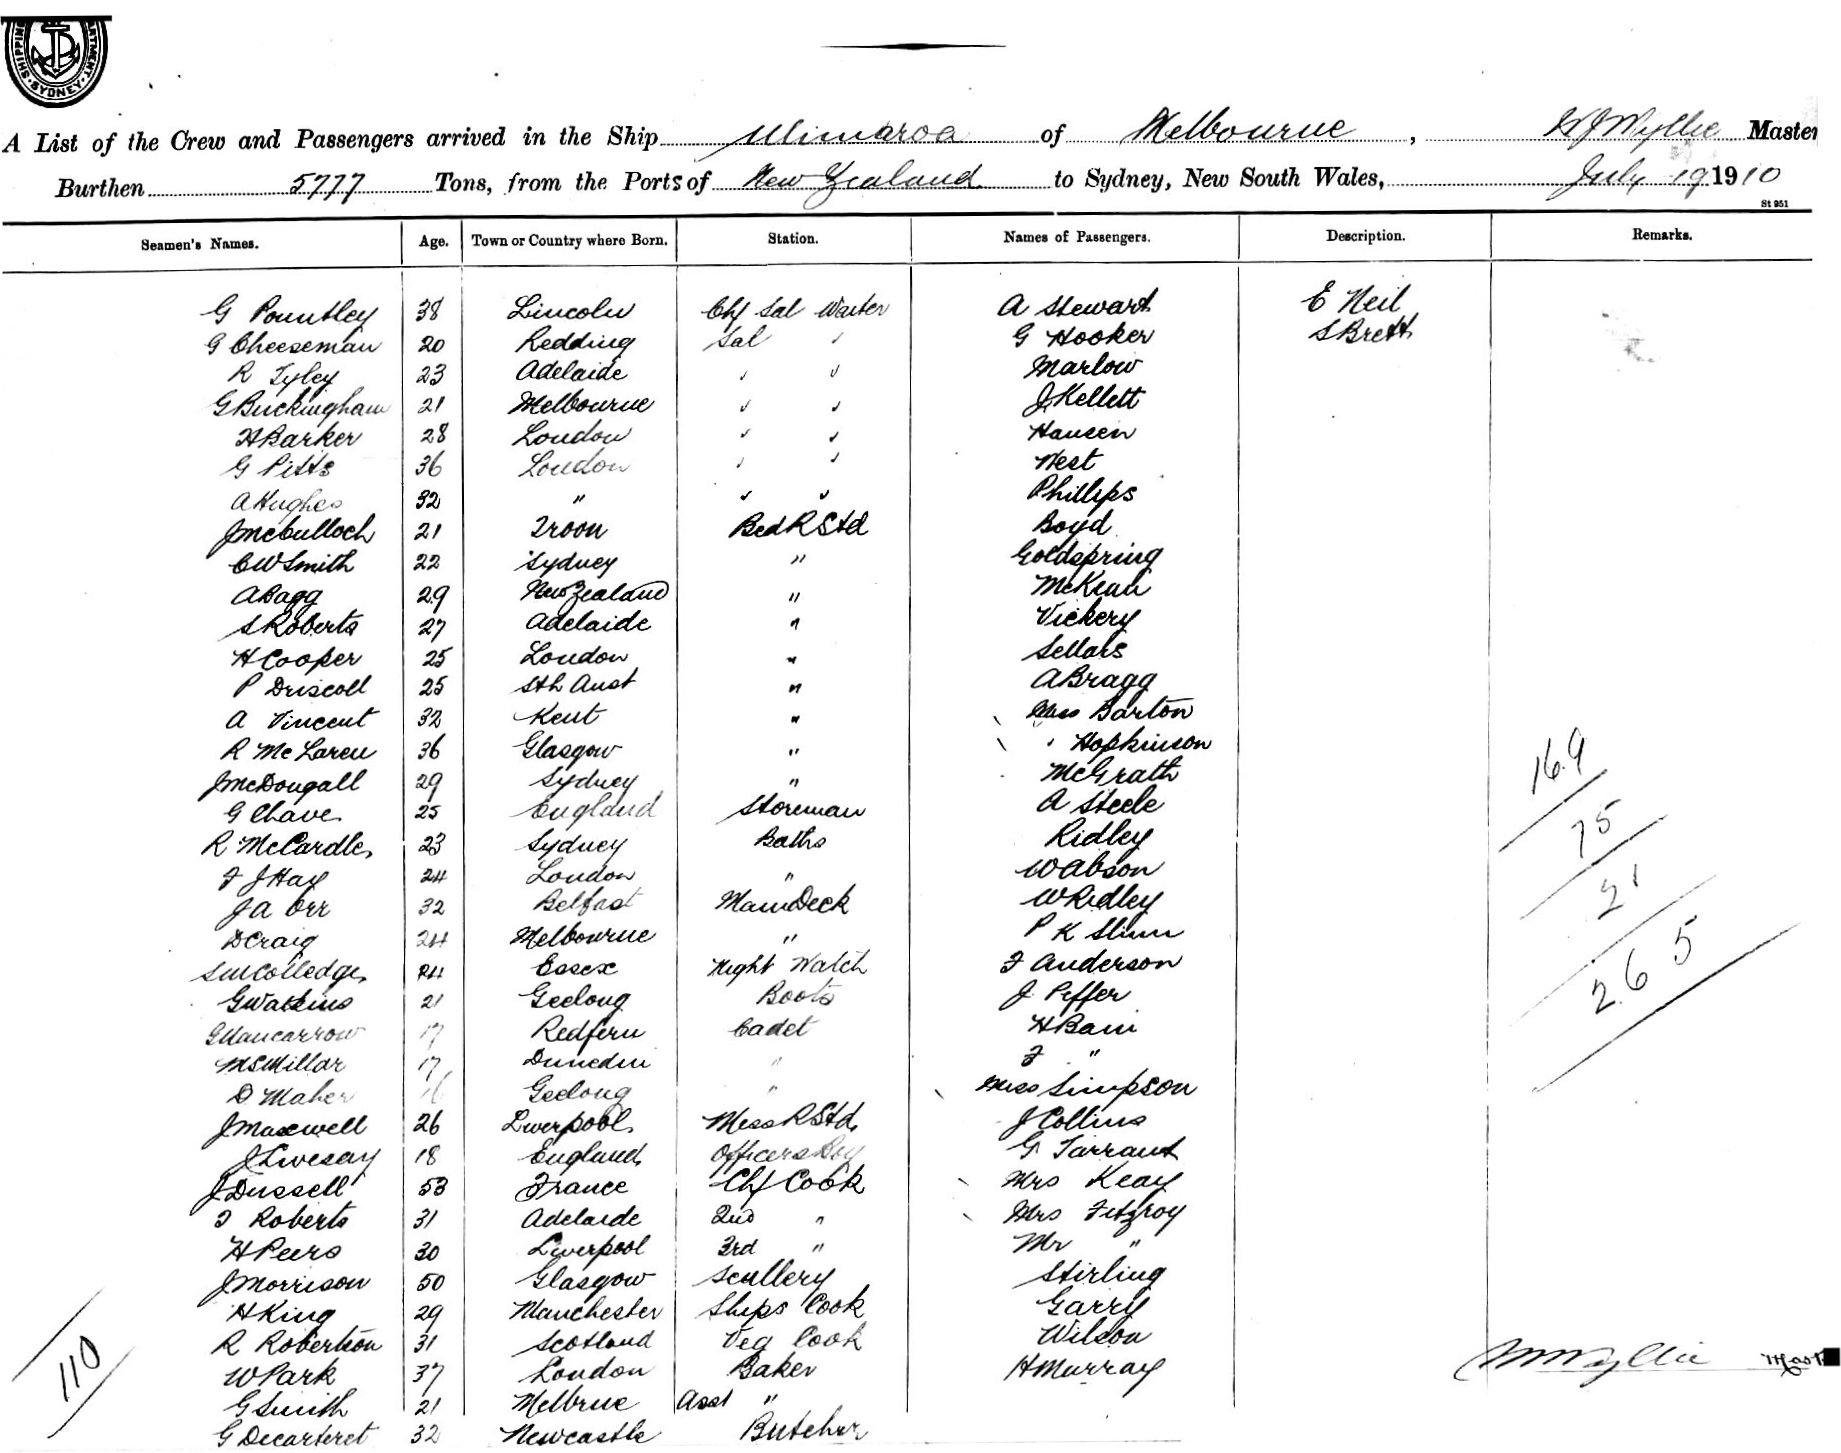 SHIPPING DEPARTMENT SYDNEY
A List of the Crew and Passengers arrived in the Ship Ulimaroa of Melbourne, W J Wyllie Master
Burthen 5777 Tons, from the Ports of New Zealand to Sydney, New South Wales, July 19 1910
St 951
Seamen's Names. Age. Town or Country where Born. Station. Names of Passengers. Description. Remarks.
G Pountley 38 Lincoln Chf Sal Waiter A Stewart E Neil
G Cheeseman 20 Redding Sal " G Hooker S Brett
R Tyley 23 Adelaide " " Marlow
G Buckingham 21 Melbourne " " J Kellett
H Barker 28 London " " Hansen
G Pitts 36 London " " West
A Hughes 32 " " " Phillips
J McCulloch 21 Troon Bed R Std Boyd
C W Smith 22 Sydney " Goldspring
A Bagg 29 New Zealand " McKean
S Roberts 27 Adelaide " Vickery
H Cooper 25 London " Sellars
P Driscoll 25 Sth Aust " A Bragg
A Vincent 32 Kent " Miss Barton
R McLaren 36 Glasgow " " Hopkinson
J McDougall 29 Sydney " McGrath
G Chave 25 England Storeman A Steele
R McCardle 23 Sydney Baths Ridley
F J Hay 24 London " W Abson
J A Orr 32 Belfast Main Deck W Ridley
D Craig 24 Melbourne " P K Slinn
S W Colledge 24 Essex Night Watch F Anderson
G Watkins 21 Geelong Boots J Peffer
G Nancarrow 17 Redfern Cadet H Bain
M S Millar 17 Dunedin " F "
D Maher 16 Geelong " Miss Simpson
J Maxwell 26 Liverpool Mess R Std J Collins
J Livesay 18 England Officers Boy G Tarrant
J Dussell 53 France Chf Cook Mrs Keay
F Roberts 31 Adelaide 2nd " Mrs Fitzroy
H Peers 30 Liverpool 3rd " Mr "
J Morrison 50 Glasgow Scullery Stirling
H King 29 Manchester Ships Cook Garry
R Robertson 31 Scotland Veg Cook Wilson
W Park 37 London Baker H Murray
G Smith 21 Melbrne Asst "
G Decarteret 32 Newcastle Butcher
169
75
21
265
110
W J Wyllie Master